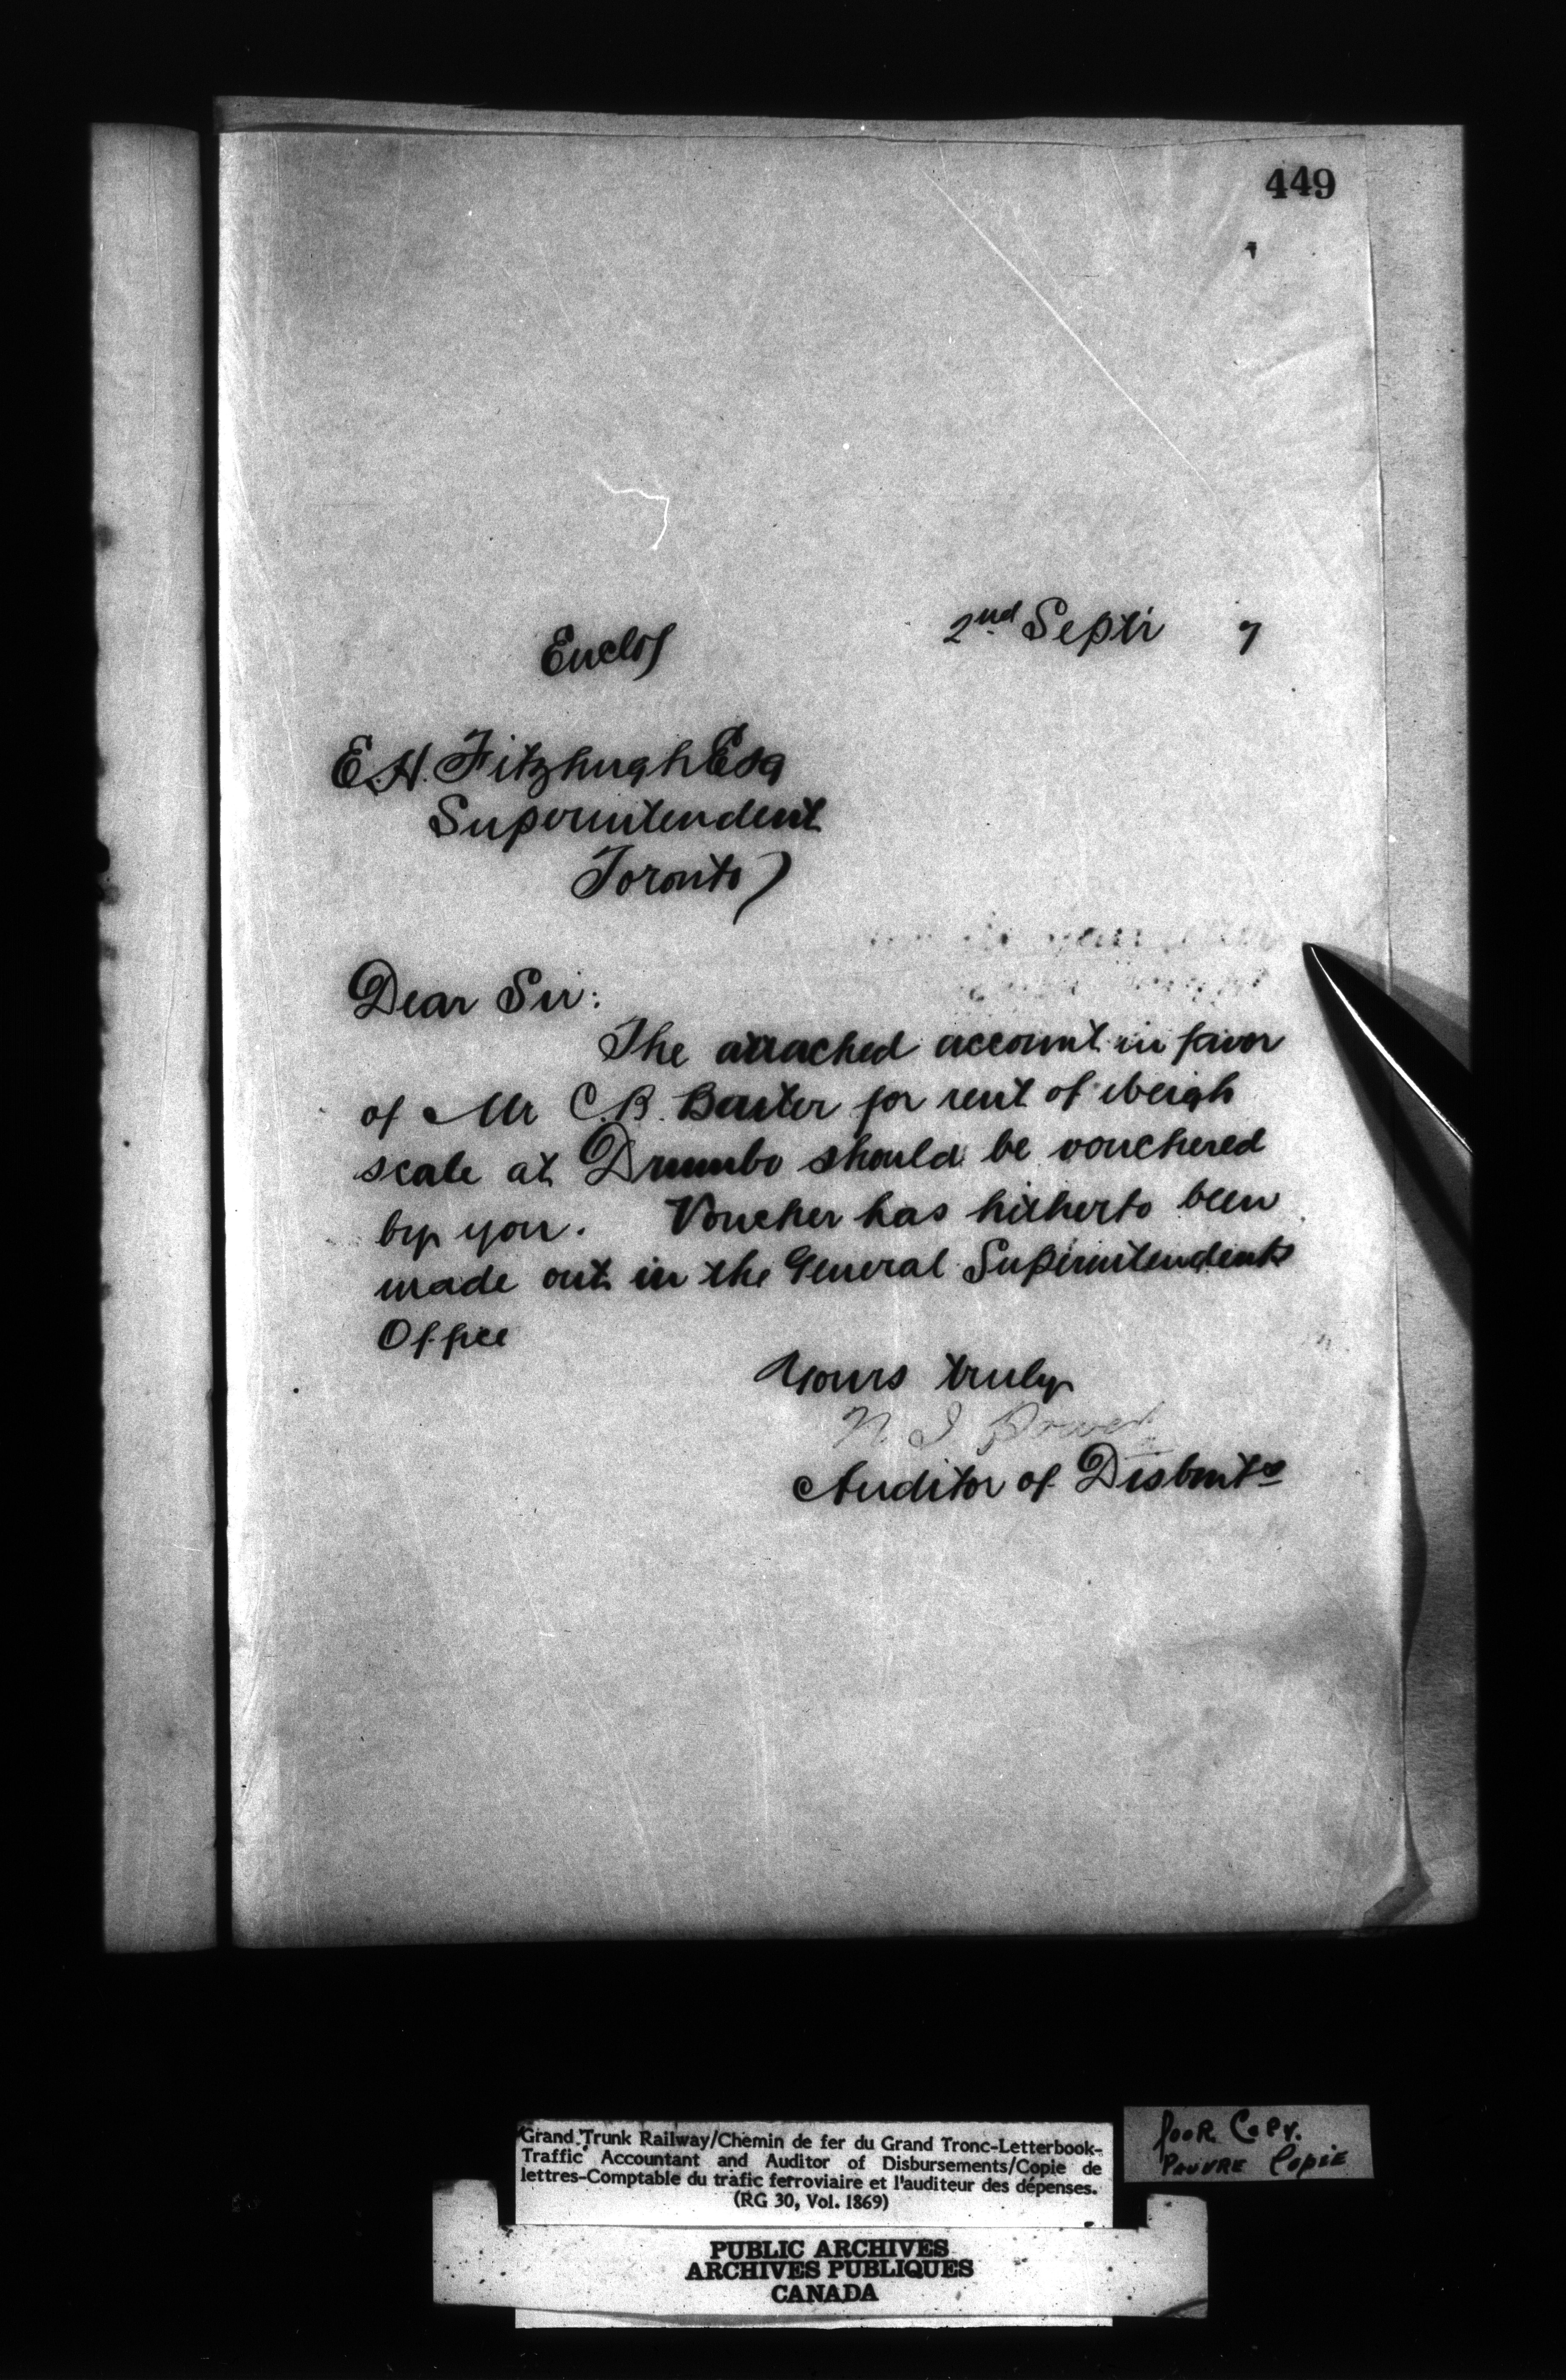 449
Enclos
2nd Septr 7
E.H. Fitzhugh Esq
Superintendent
Toronto
Dear Sir:
The attached account in favor
of Mr C.B. Baxter for rent of weigh
scale at Drumbo should be vouchered
by you. Voucher has hitherto been
made out in the General Superintendents
Office
Yours truly
Auditor of Disbmts
Grand Trunk Railway/Chemin de fer du Grand Tronc-Letterbook-
Traffic Accountant and Auditor of Disbursements/Copie de
lettres-Comptable du trafic ferroviaire et l'auditeur des dépenses.
(RG 30, Vol. 1869)
POOR COPY.
PAUVRE COPIE
PUBLIC ARCHIVES
ARCHIVES PUBLIQUES
CANADA